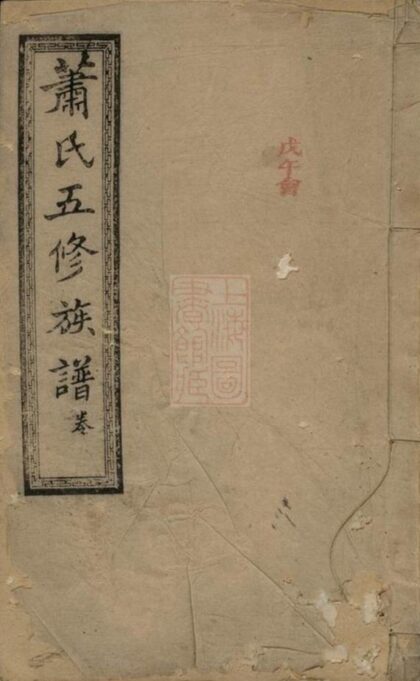 戊午會
上海圖
書館臧
蕭氏五修族譜 卷